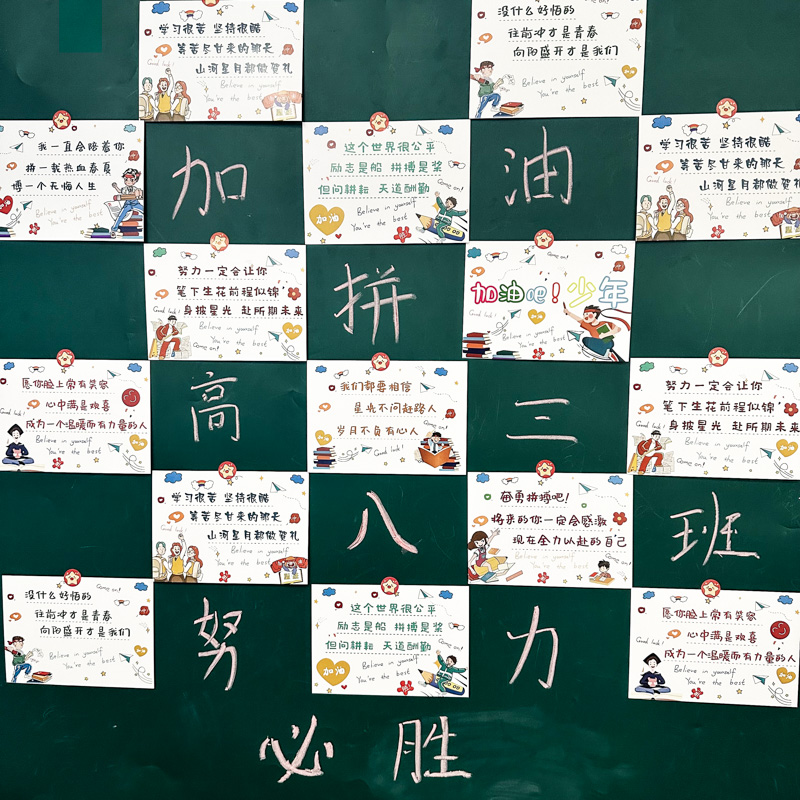 学习很苦 坚持很酷
等苦尽甘来的那天
山河星月都做贺礼
Good luck!
Believe in yourself
You're the best
没什么好怕的
往前冲才是青春
向阳盛开才是我们
Believe in yourself
You're the best
加油
我一直会陪着你
拼一载热血春夏
搏一个无悔人生
Believe in yourself
You're the best
加
这个世界很公平
励志是船 拼搏是桨
但问耕耘 天道酬勤
Come on!
加油
Believe in yourself
You're the best
油
学习很苦 坚持很酷
等苦尽甘来的那天
山河星月都做贺礼
Good luck!
Believe in yourself
You're the best
努力一定会让你
笔下生花前程似锦
身披星光 赴所期未来
Good luck!
Believe in yourself
You're the best
Come on!
加油
拼
加油吧!少年
Good luck!
Believe in yourself
You're the best
愿你脸上常有笑容
心中满是欢喜
成为一个温暖而有力量的人
Good luck!
Believe in yourself
You're the best
加油
高
我们都要相信
星光不问赶路人
岁月不负有心人
Come on!
加油
Good luck!
三
努力一定会让你
笔下生花前程似锦
身披星光 赴所期未来
Good luck!
Believe in yourself
You're the best
Come on!
加油
学习很苦 坚持很酷
等苦尽甘来的那天
山河星月都做贺礼
Good luck!
Believe in yourself
You're the best
八
奋勇拼搏吧!
将来的你一定会感激
现在全力以赴的自己
Believe in yourself
You're the best
班
没什么好怕的
往前冲才是青春
向阳盛开才是我们
Come on!
Believe in yourself
You're the best
加油
努
这个世界很公平
励志是船 拼搏是桨
但问耕耘 天道酬勤
Come on!
加油
Believe in yourself
You're the best
力
愿你脸上常有笑容
心中满是欢喜
成为一个温暖而有力量的人
Good luck!
Believe in yourself
You're the best
加油
必胜